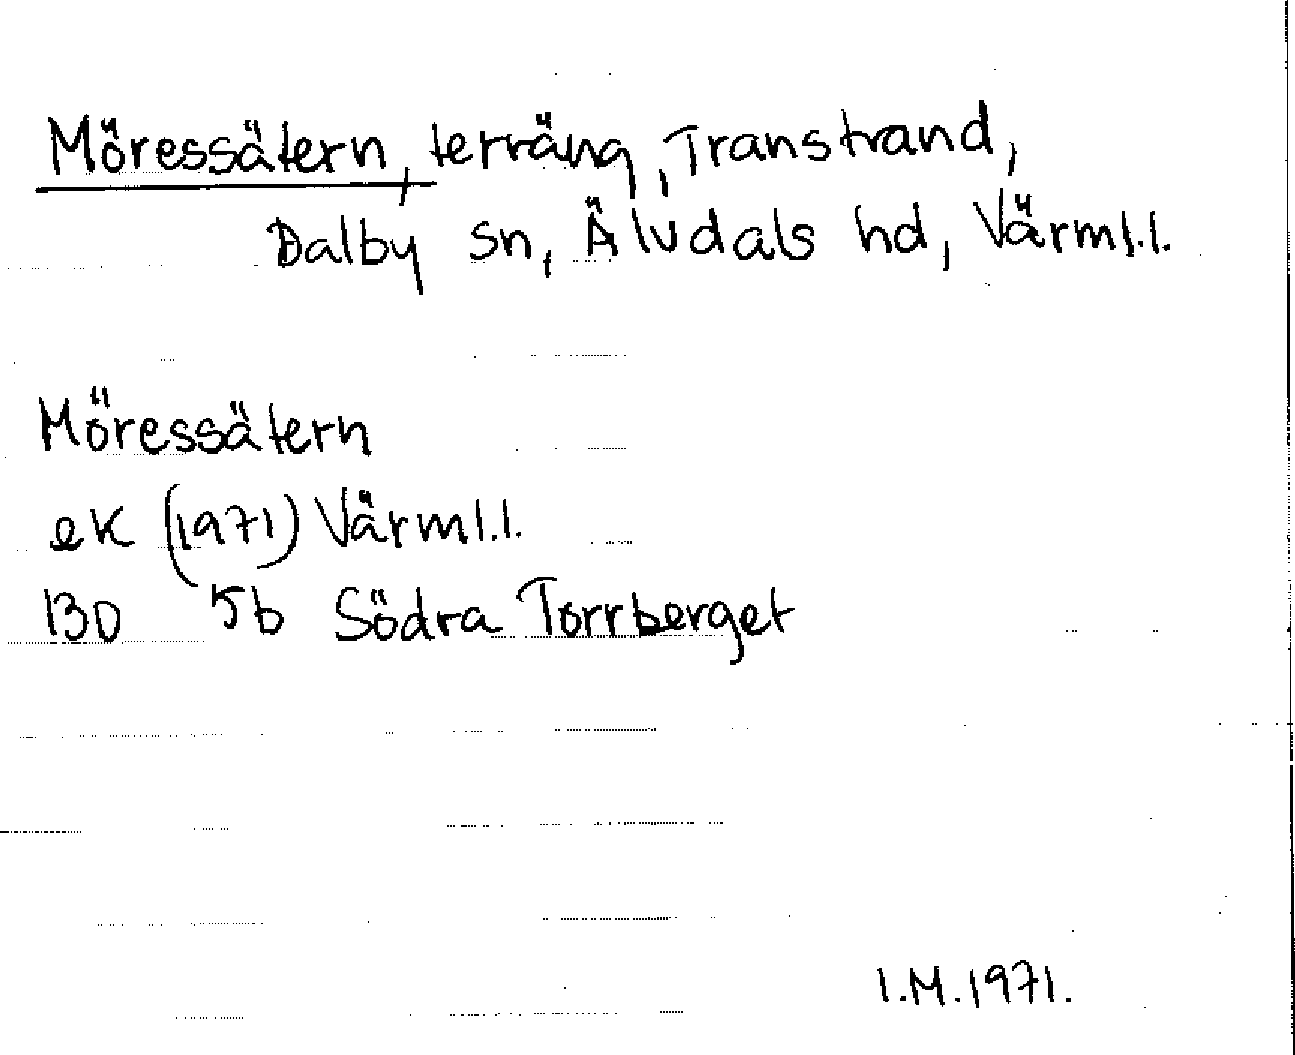 Möressätern, terräng, Transtrand,
Dalby sn, Älvdals hd, Värml.l.
Möressätern
ek (1971) Värml.l.
13D 5b Södra Torrberget
I.M.1971.